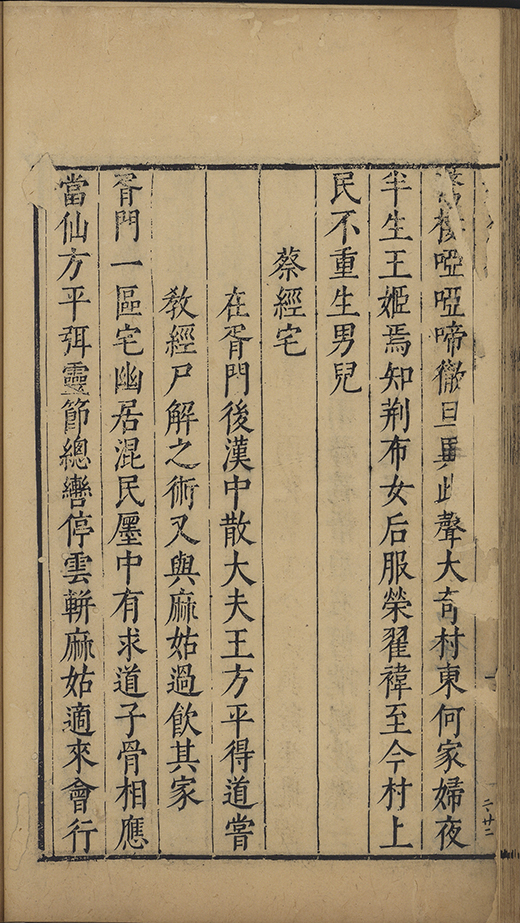 啞啞啼徹旦異此聲大奇村東何家婦夜
半生王姬焉知荊布女后服榮翟褘至今村上
民不重生男兒
蔡經宅
在胥門後漢中散大夫王方平得道嘗
敎經尸解之術又與麻姑過飲其家
胥門一區宅幽居混民廛中有求道子骨相應
當仙方平弭靈節總轡停雲軿麻姑適來會行
二、廿二